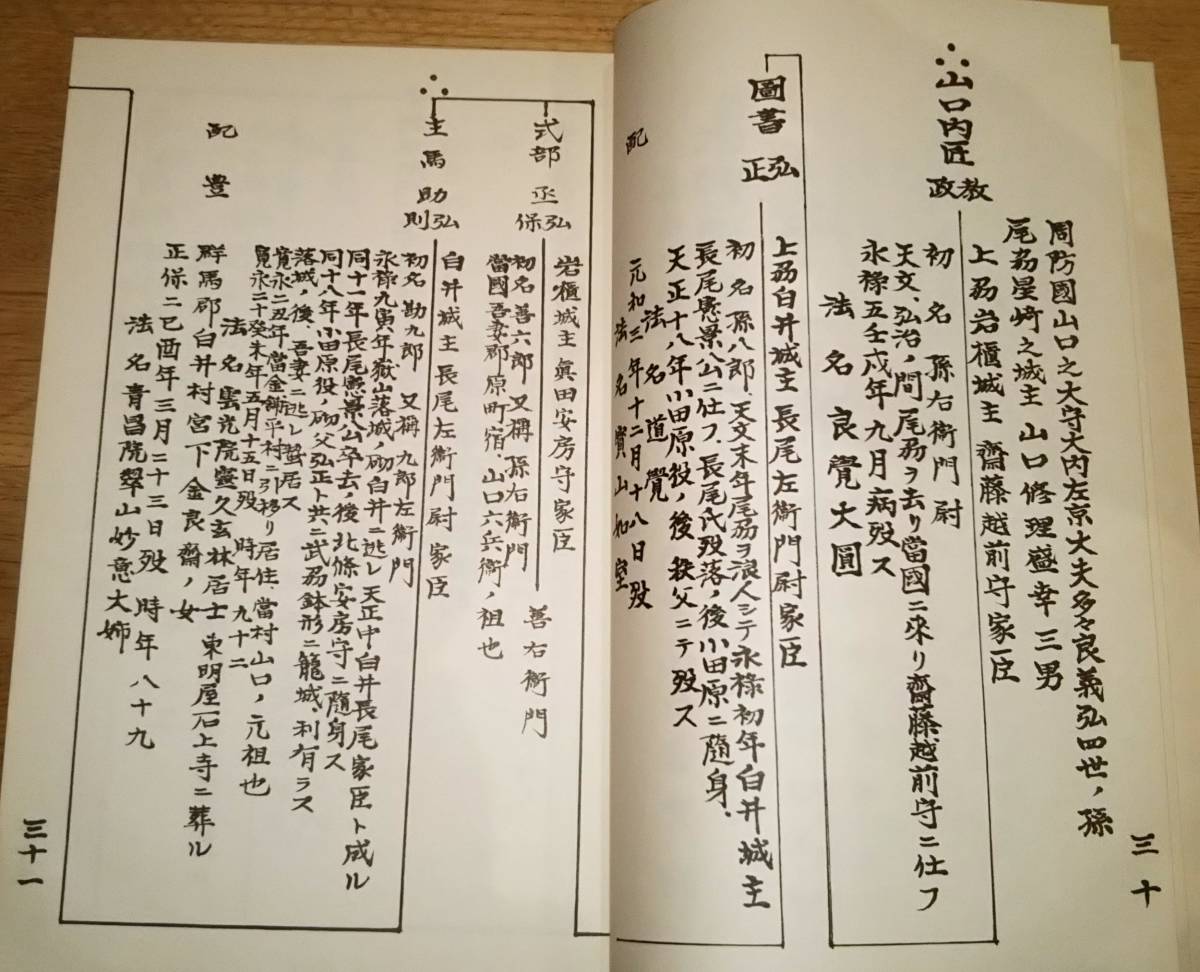 三十
周防國山口之大守大内左京大夫多々良義弘四世ノ孫
尾刕星﨑之城主 山口修理盛幸三男
∴山口内匠 教政
上刕岩櫃城主 齋藤越前守家臣
初名 孫右衛門尉
天文、弘治ノ間 尾刕ヲ去リ當國ニ來リ齋藤越前守ニ仕フ
永禄五壬戌年九月病歿ス
法名 良覺大圓
圖書 弘正
上刕白井城主 長尾左衛門尉家臣
初名孫八郎、天文末年尾刕ヲ浪人シテ永禄初年白井城主
長尾憲景公ニ仕フ、長尾氏歿落ノ後小田原ニ隨身、
天正十八年小田原役ノ後 秩父ニテ歿ス
法名 道覺
配
元和三年十二月十八日歿
法名 實山如室
式部丞 弘保
岩櫃城主 眞田安房守家臣
初名善六郎 又稱孫右衛門 善右衛門
當國吾妻郡原町宿、山口六兵衛ノ祖也
∴主馬助 弘則
白井城主長尾左衛門尉家臣
初名勘九郎 又稱九郎左衛門
永禄九寅年嶽山落城ノ砌白井ニ逃レ天正中白井長尾家臣ト成ル
同十一年長尾憲景公卒去ノ後北條安房守ニ隨身ス
同十八年小田原役ノ砌父弘正ト共ニ武刕鉢形ニ籠城、利有ラス
落城ノ後 吾妻ニ逃レ蟄居ス
寛永二丑年當金井平村ニ引移リ居住、當村山口ノ元祖也
寛永二十癸未年五月十五日歿 時年九十二
法名雲光院憲久玄林居士 東明屋石上寺ニ葬ル
配 豊
群馬郡白井村宮下金良齋ノ女
正保二己酉年三月二十三日歿 時年八十九
法名青昌院翠山妙意大姉
三十一